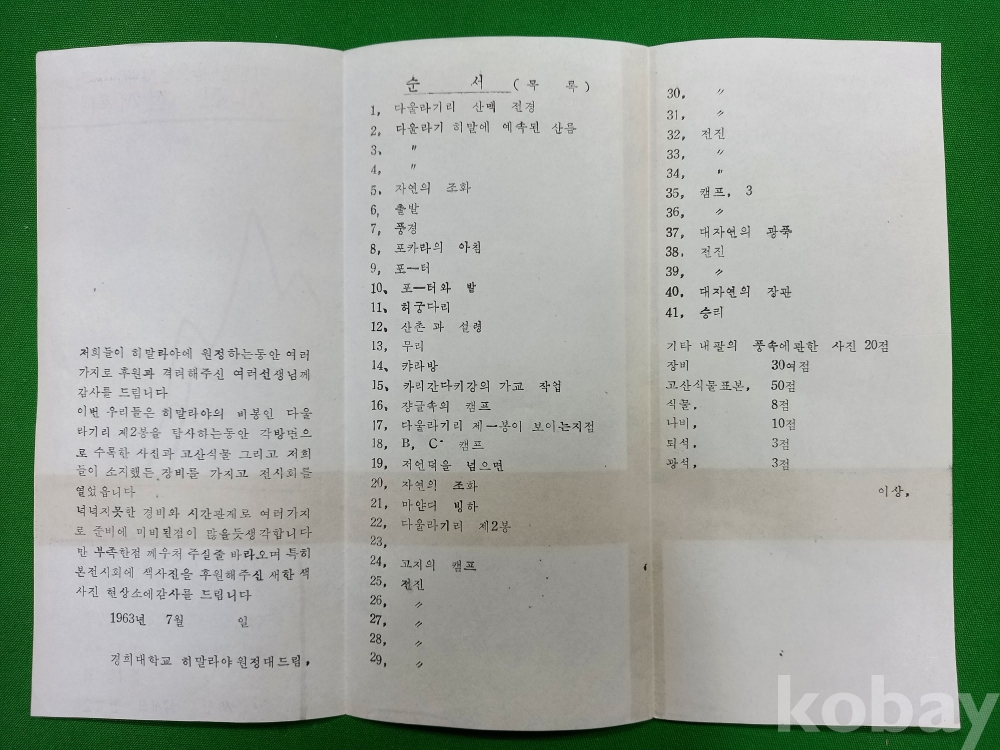 저희들이 히말라야에 원정하는동안 여러
가지로 후원과 격려해주신 여러선생님께
감사를 드립니다
이번 우리들은 히말라야의 비봉인 다울
라기리 제2봉을 탐사하는동안 각방면으
로 수록한 사진과 고산식물 그리고 저희
들이 소지했든 장비를 가지고 전시회를
열었읍니다
넉넉지못한 경비와 시간관계로 여러가지
로 준비에 미비된점이 많을듯생각합니다
만 부족한점 깨우처 주실줄 바라오며 특히
본전시회에 색사진을 후원해주신 새한 색
사진 현상소에감사를 드립니다
1963년 7월 일
경희대학교 히말라야원정대드림,
순 서 (목 록)
1, 다울라기리 산맥 전경
2, 다울라기 히말에 예속된 산릉
3, 〃
4, 〃
5, 자연의 조화
6, 출발
7, 풍경
8, 포카라의 아침
9, 포ー터
10, 포ー터와 발
11, 허궁다리
12, 산촌과 설령
13, 무리
14, 캬라방
15, 카리간다키강의 가교 작업
16, 쟝글속의 캠프
17, 다울라기리 제一봉이 보이는지점
18, B, C 캠프
19, 저언덕을 넘으면
20, 자연의 조화
21, 마얀디 빙하
22, 다울라기리 제2봉
23,
24, 고지의 캠프
25, 전진
26, 〃
27, 〃
28, 〃
29, 〃
30, 〃
31, 〃
32, 전진
33, 〃
34, 〃
35, 캠프, 3
36, 〃
37, 대자연의 광폭
38, 전진
39, 〃
40, 대자연의 장관
41, 승리
기타 내팔의 풍속에관한 사진 20점
장비 30여점
고산식물표본, 50점
식물, 8점
나비, 10점
퇴석, 3점
광석, 3점
이상,
kobay